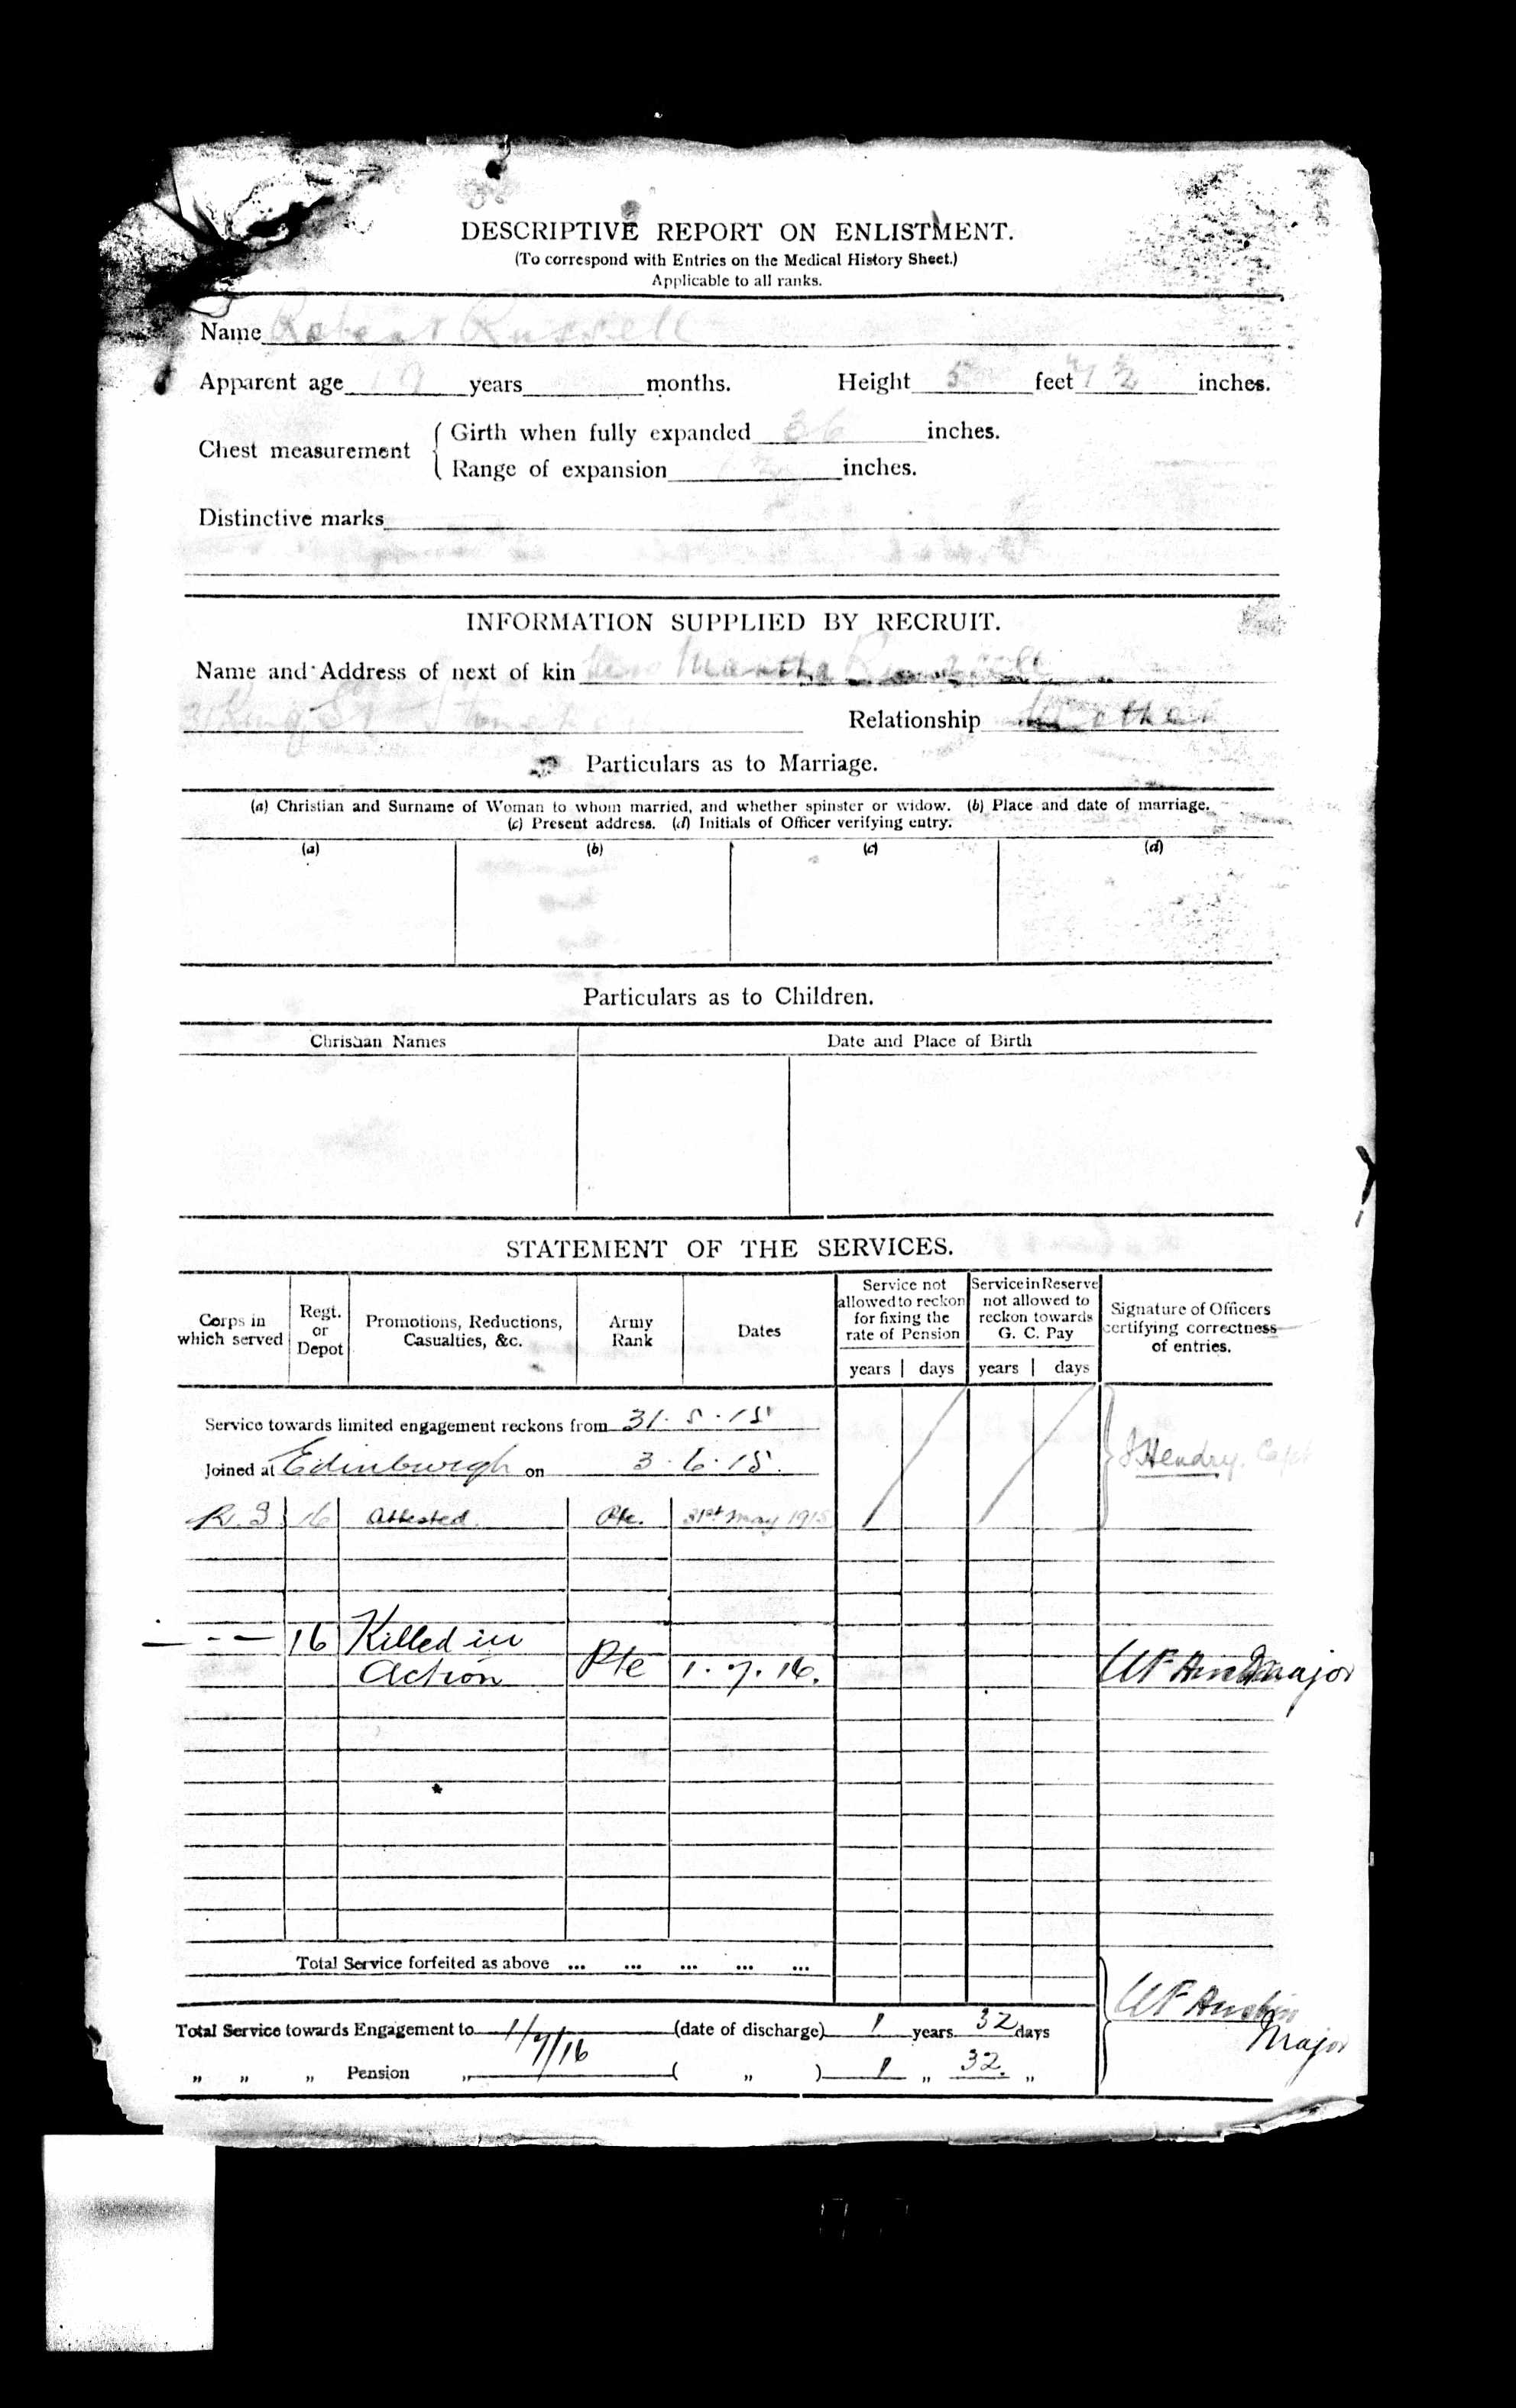 DESCRIPTIVE REPORT ON ENLISTMENT.
(To correspond with Entries on the Medical History Sheet.)
Applicable to all ranks.
Name Robert Russell
Apparent age 19 years months. Height 5 feet 7 1/2 inches.
Chest measurement { Girth when fully expanded 36 inches.
Range of expansion inches.
Distinctive marks
INFORMATION SUPPLIED BY RECRUIT.
Name and Address of next of kin Mrs Martha Russell
31 King St Relationship Mother
Particulars as to Marriage.
(a) Christian and Surname of Woman to whom married, and whether spinster or widow. (b) Place and date of marriage.
(c) Present address. (d) Initials of Officer verifying entry.
(a) (b) (c) (d)
Particulars as to Children.
Christian Names Date and Place of Birth
STATEMENT OF THE SERVICES.
Corps in which served Regt. or Depot Promotions, Reductions, Casualties, &c. Army Rank Dates Service not allowed to reckon for fixing the rate of Pension Service in Reserve not allowed to reckon towards G. C. Pay Signature of Officers certifying correctness of entries.
years days years days
Service towards limited engagement reckons from 31. 5. 15
Joined at Edinburgh on 3. 6. 15. Hendry. Capt
R. S 16 Attested. Pte. 31st May 1915
— - — 16 Killed in
Action Pte 1. 7. 16. Major
Total Service forfeited as above ... ... ... ... ...
W F Austin
Major
Total Service towards Engagement to 1/7/16 (date of discharge) 1 years 32 days
„ „ „ Pension „ ( „ ) 1 „ 32. „